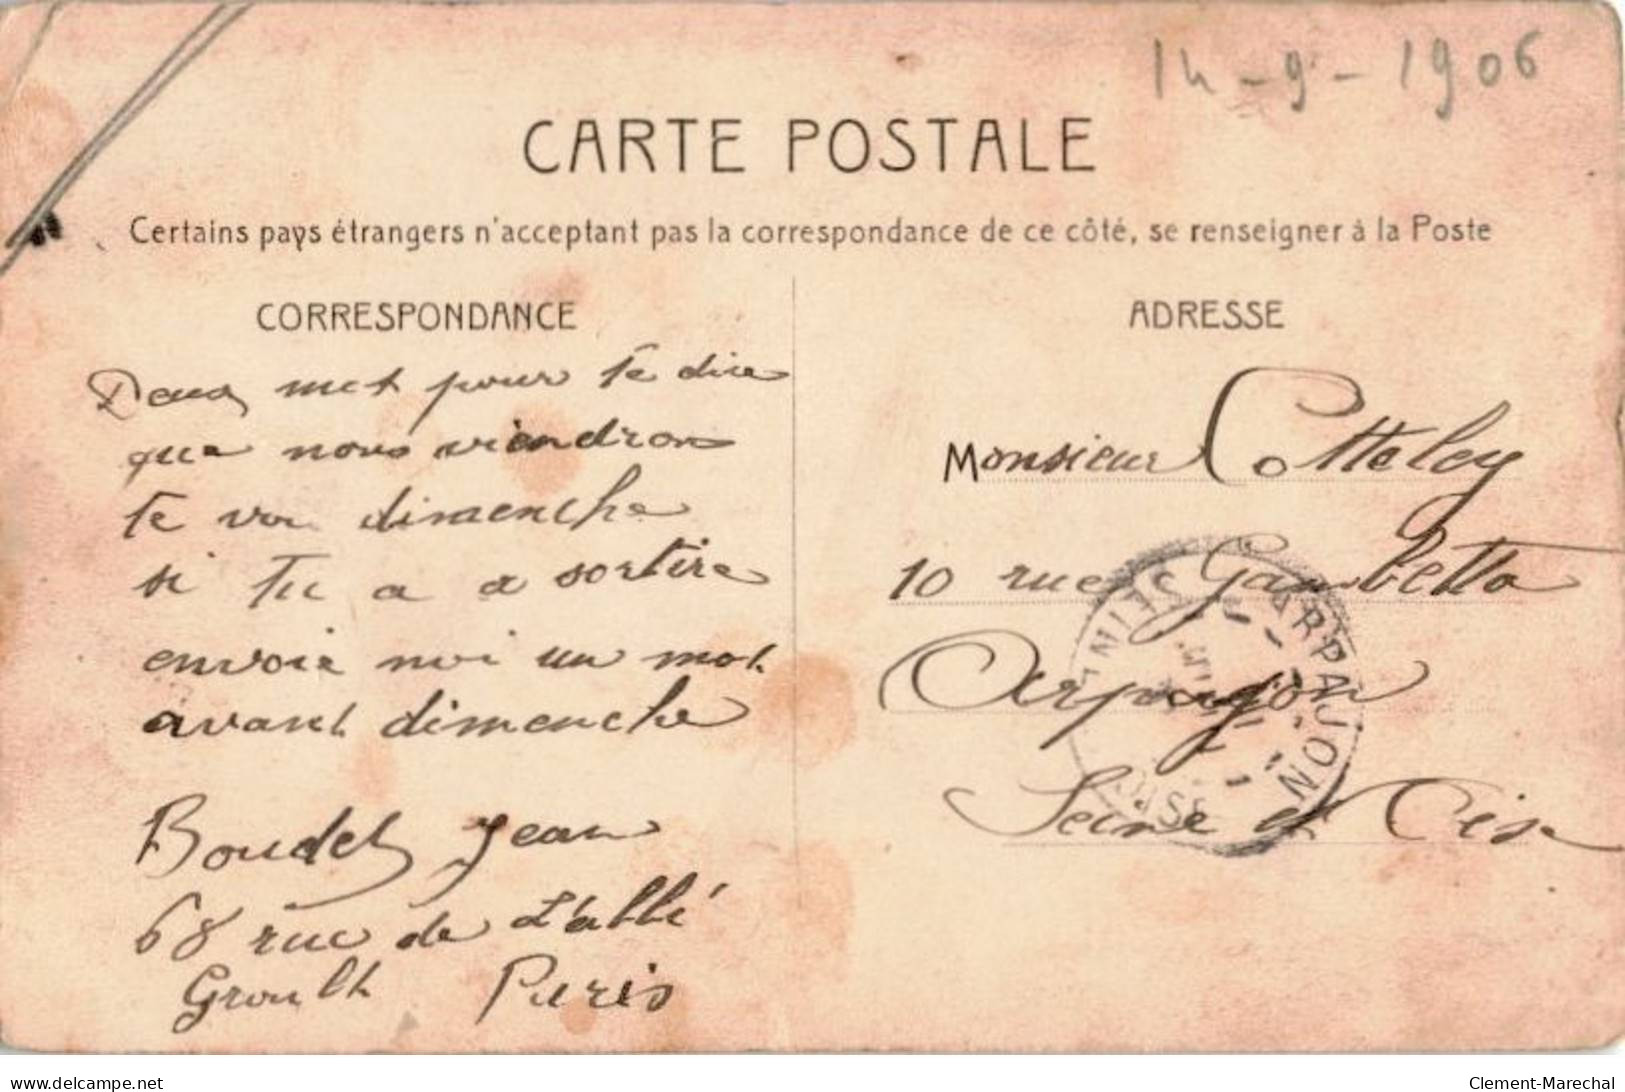 14-9-1906
CARTE POSTALE
Certains pays étrangers n'acceptent pas la correspondance de ce côté, se renseigner à la Poste
CORRESPONDANCE
Deux mot pour te dire
que nous viendrons
te voir dimenche
si tu a a sortire
envoie moi un mot
avant dimenche
Boudet Jean
68 rue de L'abbé
Groult Paris
ADRESSE
Monsieur Cotteley
10 rue Gambetta
Arpajon
Seine et Oise
ARPAJON
SEINE
OISE
www.delcampe.net
Clement-Marechal